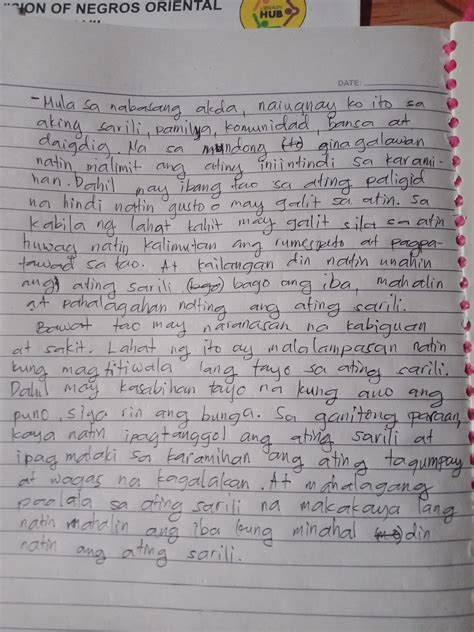 ION OF NEGROS ORIENTAL
LIBRARY
HUB
DATE:
- Mula sa nabasang akda, naiugnay ko ito sa
aking sarili, pamilya, komunidad, bansa at
daigdig. Na sa mundong ito ginagalawan
natin, malimit ang ating iniintindi sa karami-
han. Dahil may ibang tao sa ating paligid
na hindi natin gusto o may galit sa atin. Sa
kabila ng lahat kahit may galit sila sa atin
huwag natin kalimutan ang rumespeto at pagpa-
tawad sa tao. At kailangan din natin unahin
ang ating sarili (bago) bago ang iba, mahalin
at pahalagahan nating ang ating sarili.
Bawat tao may naranasan na kabiguan
at sakit. Lahat ng ito ay malalampasan natin
kung magtitiwala lang tayo sa ating sarili.
Dahil may kasabihan tayo na kung ano ang
puno, siya rin ang bunga. Sa ganitong paraan,
kaya natin ipagtanggol ang ating sarili at
ipag malaki sa karamihan ang ating tagumpay
at wagas na kagalakan. At mahalagang
paalala sa ating sarili na makakaya lang
natin mahalin ang iba kung minahal din
natin ang ating sarili.